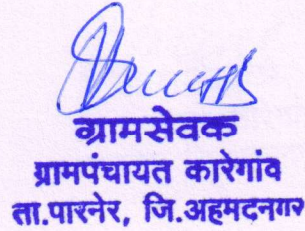 ग्रामसेवक
ग्रामपंचायत कारेगांव
ता.पारनेर, जि.अहमदनगर